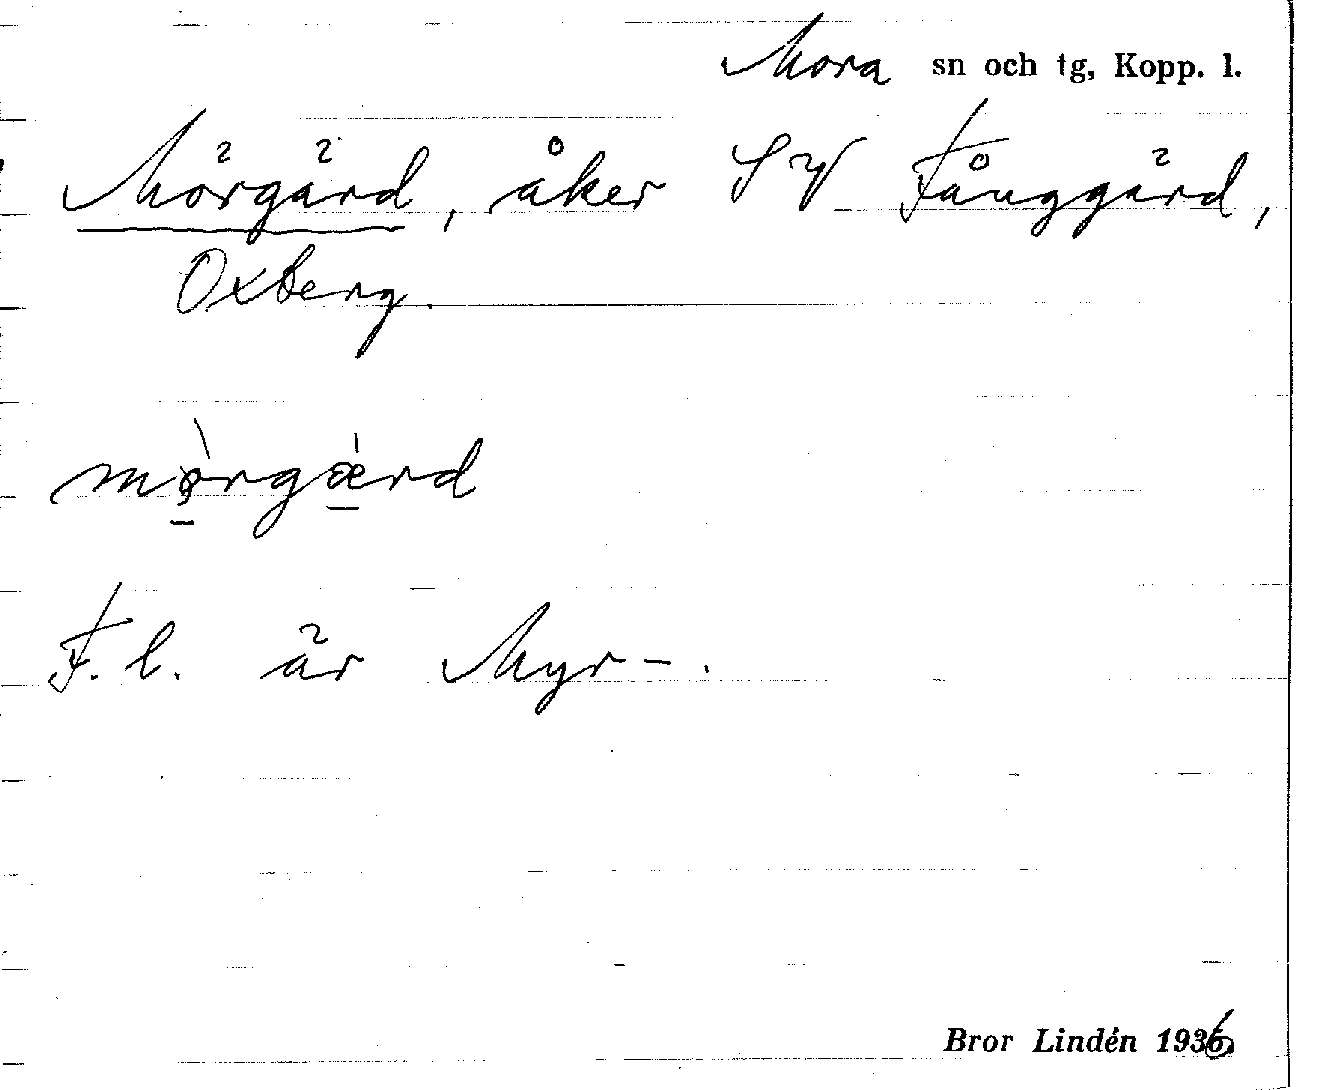 Mora sn och tg, Kopp. l.
Mörgärd, åker SV Fånggärd,
Oxberg.
mò̠rgæ̠̀rd
F. l. är Myr-.
Bror Lindén 1936